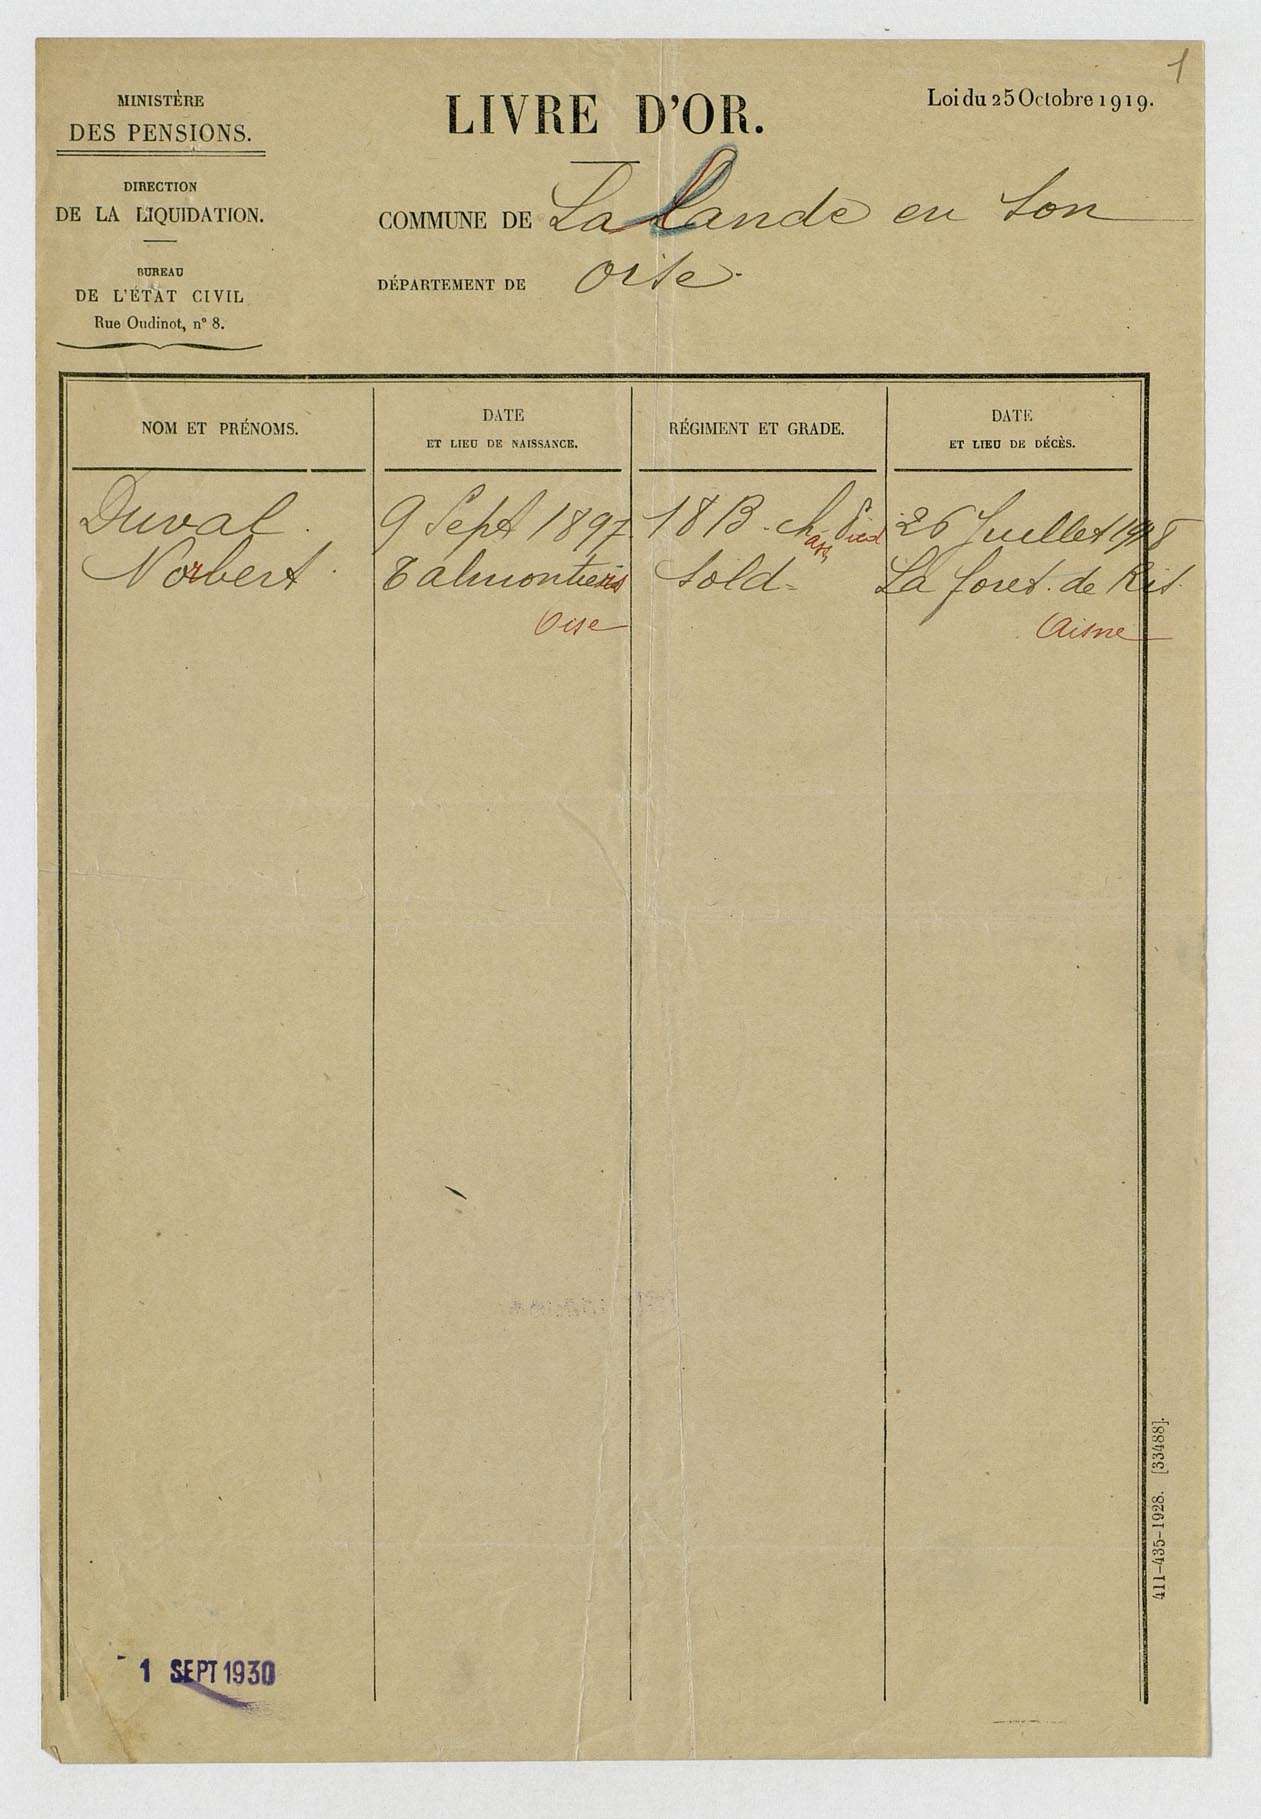 1
MINISTÈRE
DES PENSIONS.
DIRECTION
DE LA LIQUIDATION.
BUREAU
DE L'ÉTAT CIVIL
Rue Oudinot, n° 8.
LIVRE D'OR.
Loi du 25 Octobre 1919.
COMMUNE DE La Lande en Son
DÉPARTEMENT DE Oise.
NOM ET PRÉNOMS.
DATE
ET LIEU DE NAISSANCE.
RÉGIMENT ET GRADE.
DATE
ET LIEU DE DÉCÈS.
Duval 9 Sept 1897 18 B. Chass Pied 26 Juillet 1918
Norbert Talmontiers Sold. La foret. de Ris.
Oise Aisne
411-435-1928. [33488].
1 SEPT 1930